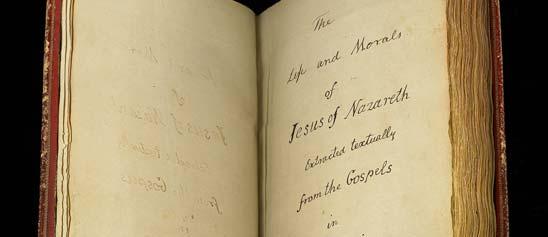 The
Life and Morals
of
Jesus of Nazareth
Extracted textually
from the Gospels
in